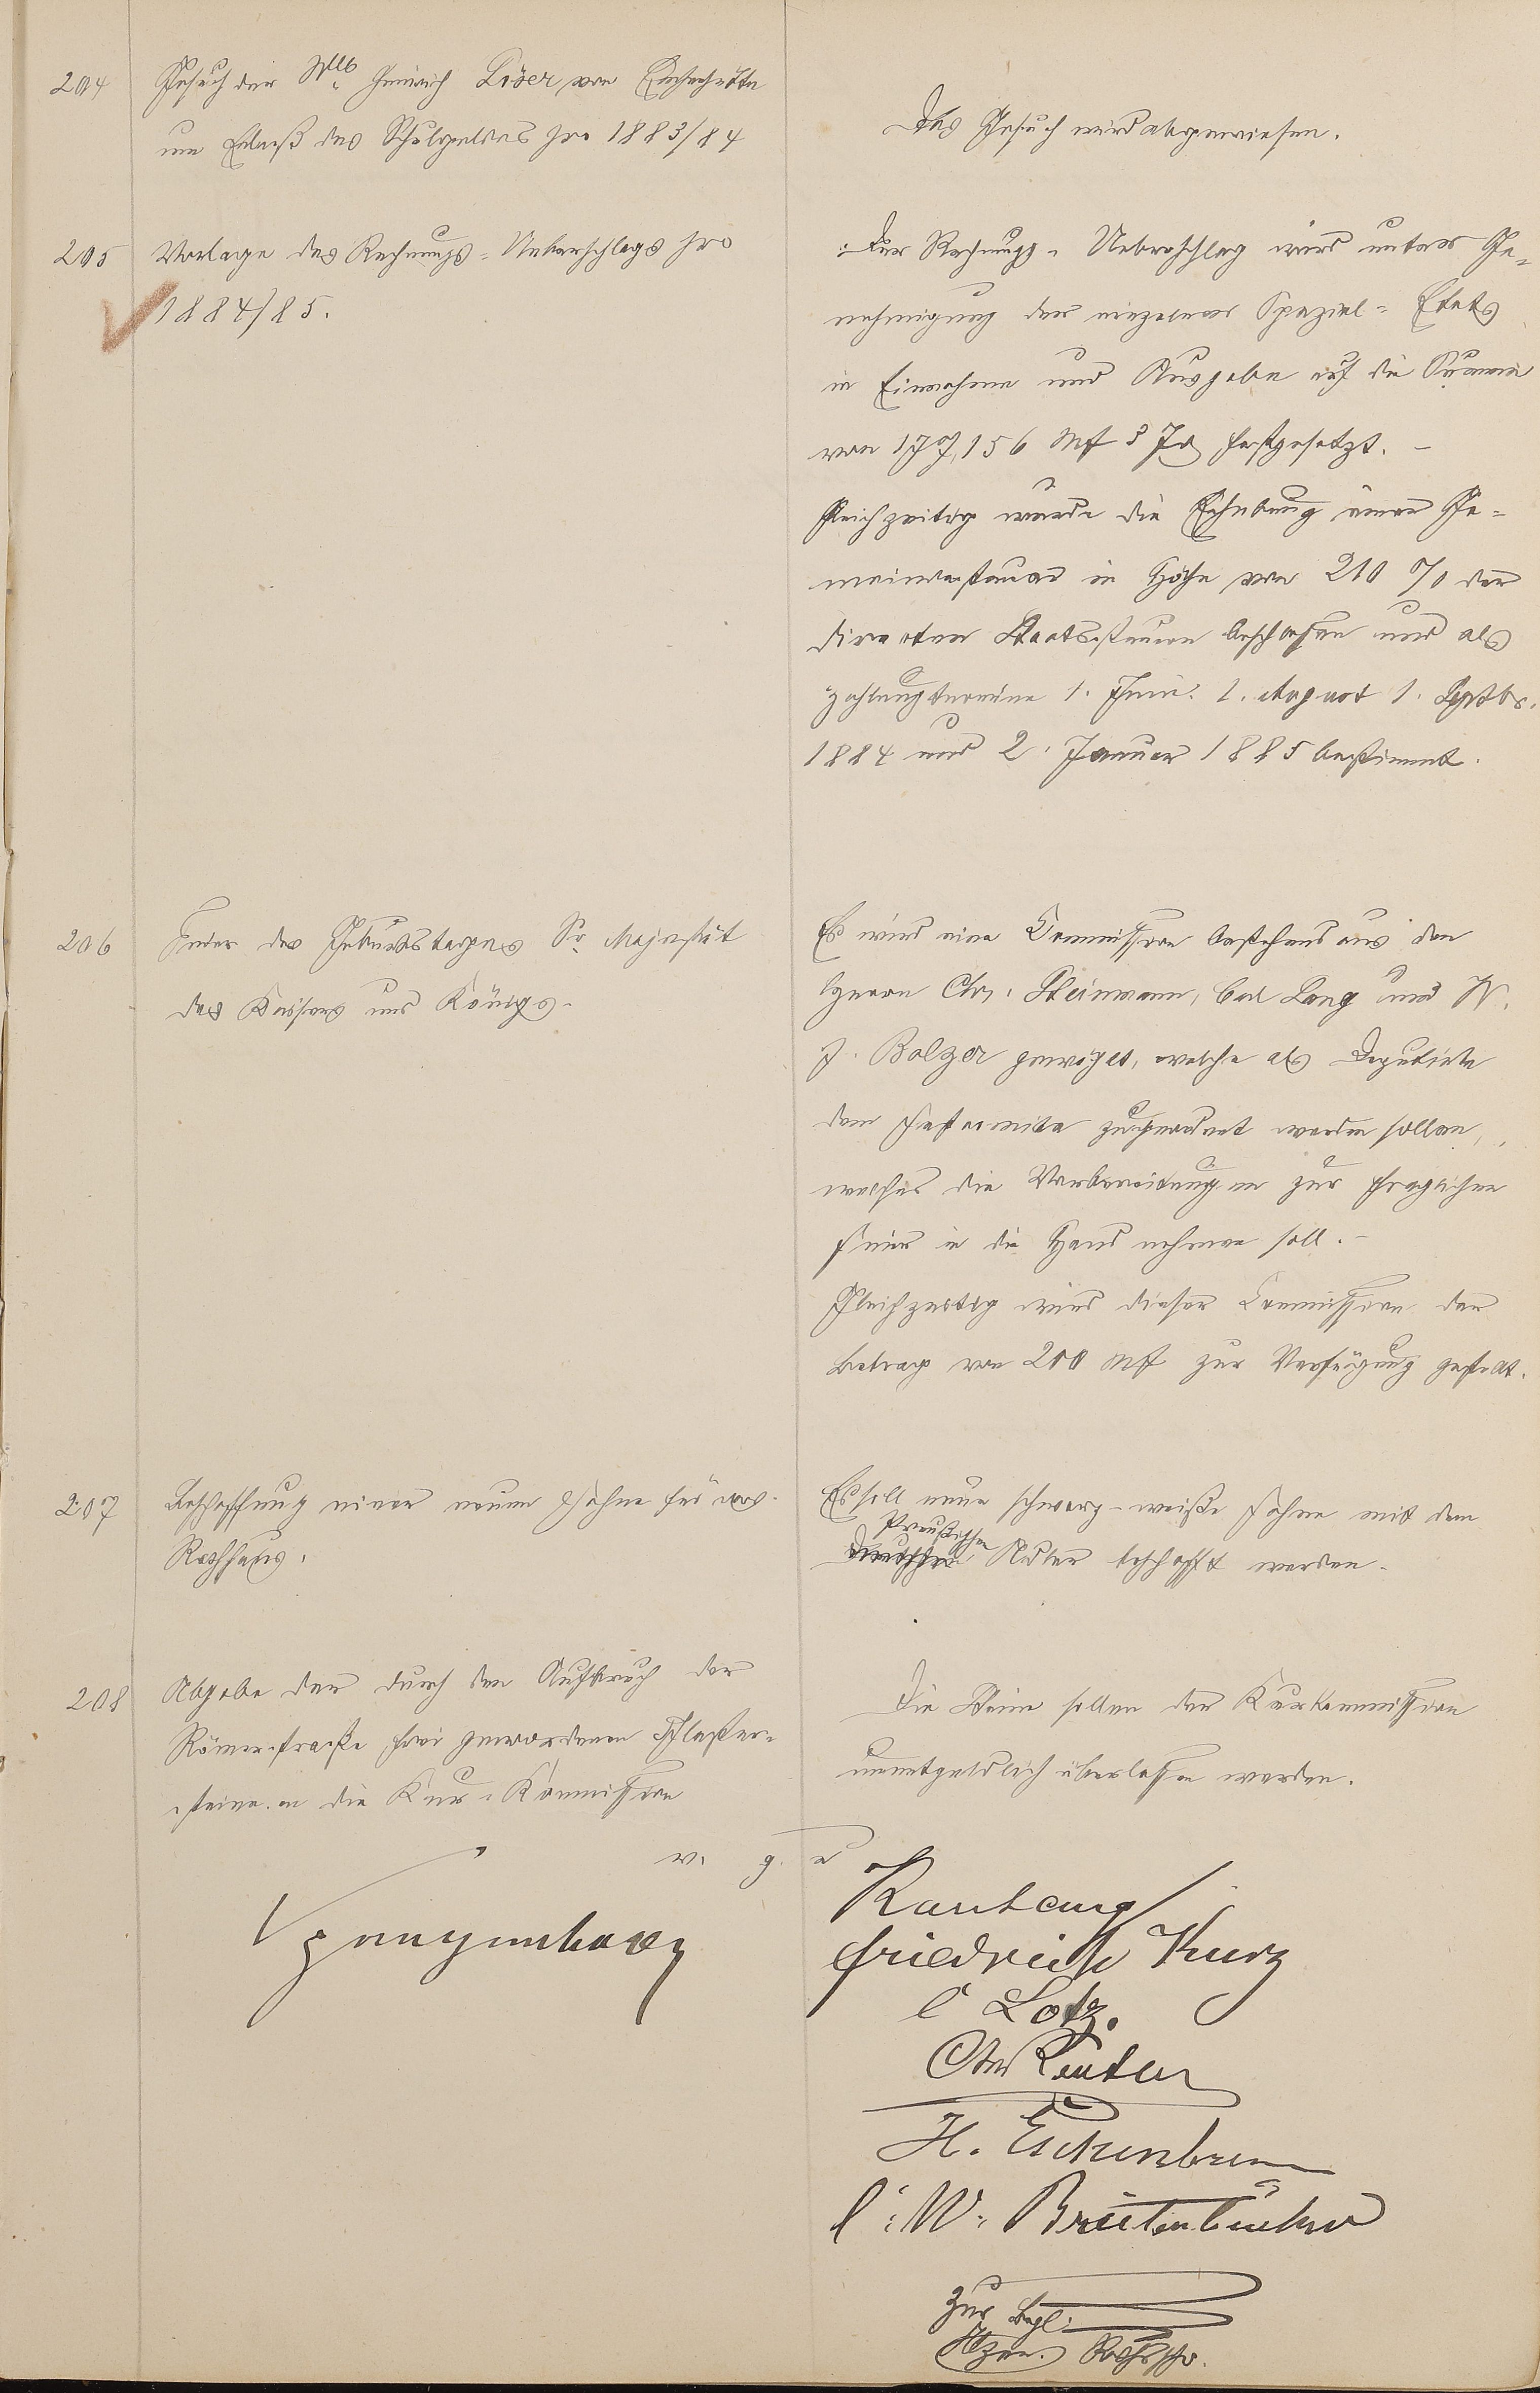 204
Gesuch der Wtb. Heinrich Löser von
um Erlaß des Schulgeldes pro 1883/84
Das Gesuch wird abgewiesen.
205
Vorlage des Rechnungs-Ueberschlags pro
1884/85.
Der Rechnungs-Ueberschlag wird unter Ge-
nehmigung der einzelnen Spezial-Etats
in Einnahme und Ausgabe auf die Summe
von 177,156 Mk festgesetzt. -
Gleichzeitig wurde die Erhebung einer Ge-
meindesteuer in Höhe von 210 % der
directen Staatssteuern beschlossen und als
Zahlungstermine 1. Juni. 1. August 1. Septbr.
1884 und 2. Januar 1885 bestimmt.
206
Feier des Geburtstages Sr. Majestät
des Kaisers und Königs.
Es wird eine Commission bestehend aus den
Herrn Chr. Steinmann, Carl Lang und W.
J. Balzer gewählt, welche als Deputirte
dem Festcomite zugeordnet werden sollen,
welches die Vorbereitungen zur fraglichen
Feier in die Hand nehmen soll. -
Gleichzeitig wird dieser Commission der
Betrag von 200 Mk zur Verfügung gestellt.
207
Beschaffung einer neuen Fahne für das
Rathhaus.
Es soll neue schwarz-weiße Fahne mit dem
Preußischen
Deutschen Adler beschafft werden.
208
Abgabe der durch den Aufbruch der
Römerstraße frei gewordenen Pflaster-
steine an die Kur-Kommission
Die Steine sollen der Kurkommission
unentgeldlich überlassen werden.
v. g. u
Friedrich Kurz
C Lotz.
Chr Reuter
H. Eschenbrenn
C. W. Breitenbücher
Zur Begl.